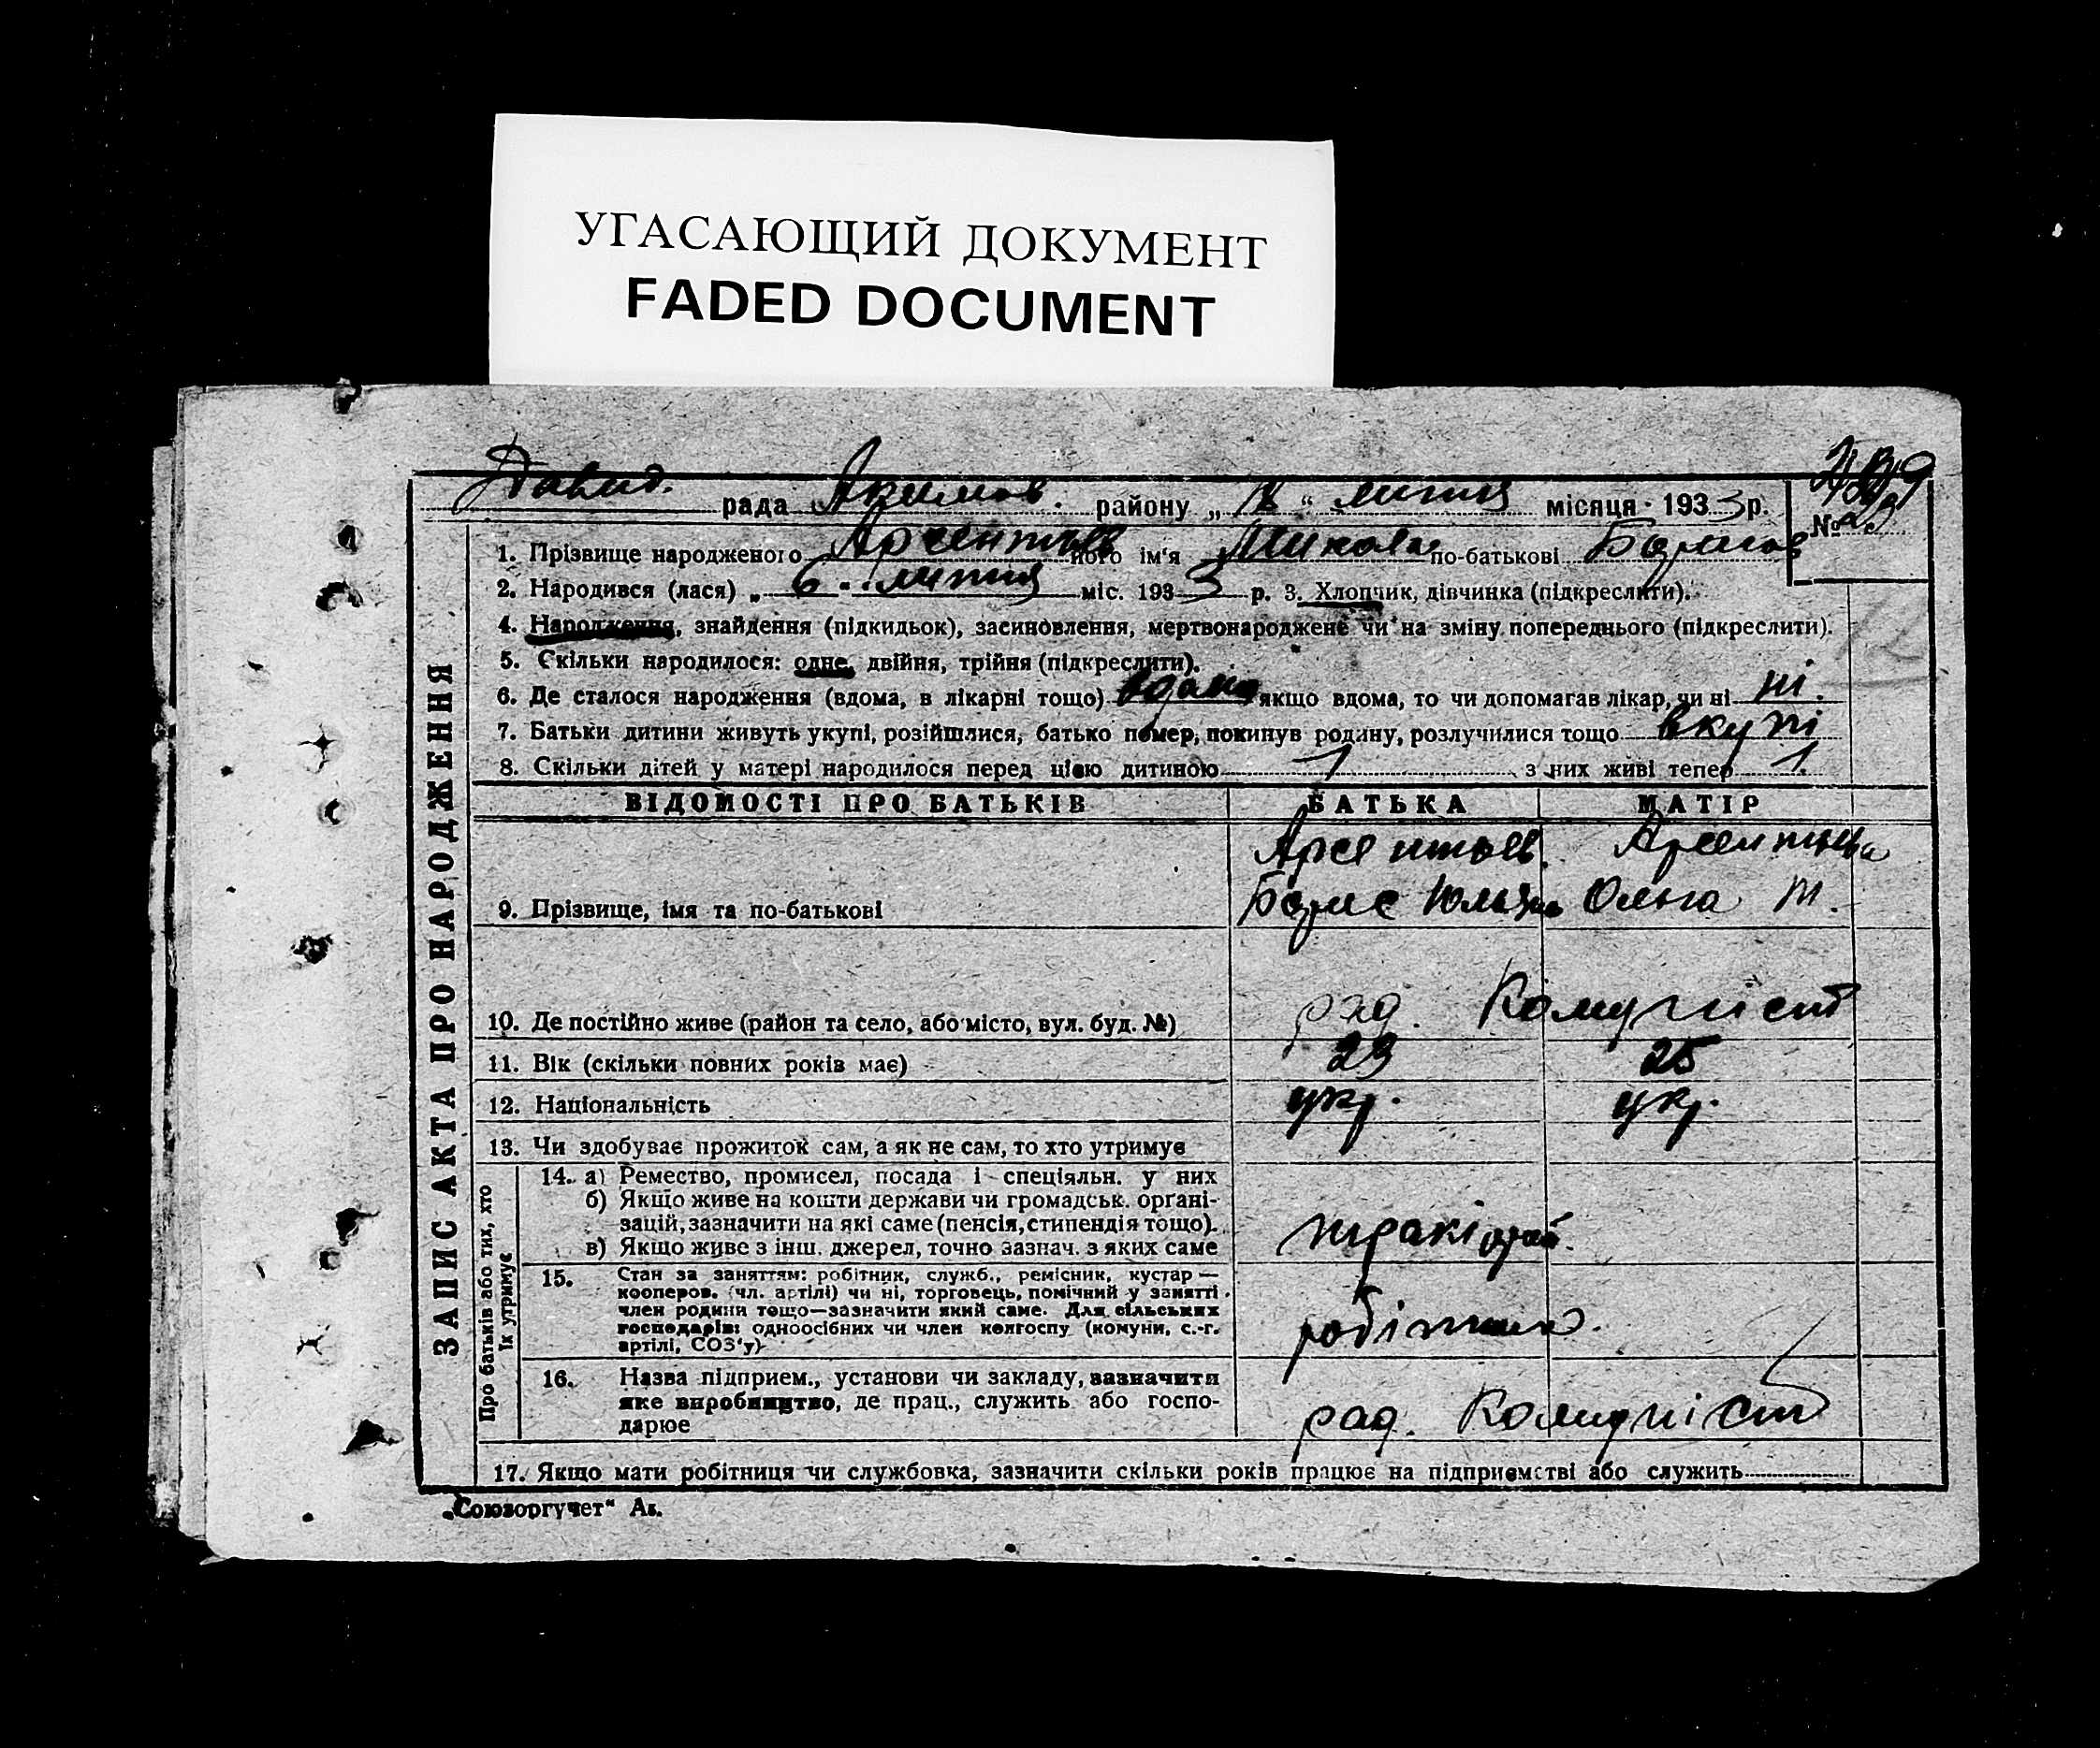 УГАСАЮЩИЙ ДОКУМЕНТ
FADED DOCUMENT
Давид. рада Акимов. району „ “ липня місяця 1933 р.
№ 23
ЗАПИС АКТА ПРО НАРОДЖЕННЯ
1. Прізвище народженого Арсентьев його ім'я Микола по-батькові Борисов
2. Народився (лася) „ 6 " липня міс. 1933 р. 3. Хлопчик, дівчинка (підкреслити).
4. Народження, знайдення (підкидьок), засиновлення, мертвонароджене чи на зміну попереднього (підкреслити).
5. Скільки народилося: одне, двійня, трійня (підкреслити).
6. Де сталося народження (вдома, в лікарні тощо) вдома якщо вдома, то чи допомагав лікар, чи ні ні.
7. Батьки дитини живуть укупі, розійшлися, батько помер, покинув родину, розлучилися тощо вкупі
8. Скільки дітей у матері народилося перед цією дитиною 1 з них живі тепер 1.
ВІДОМОСТІ ПРО БАТЬКІВ БАТЬКА МАТІР
Арсентьев. Арсентьева
9. Прізвище, імя та по-батькові Борис Ольга М.
10. Де постійно живе (район та село, або місто, вул. буд. №) рад. Комуніст
11. Вік (скільки повних років має) 23 25
12. Національність укр. укр.
13. Чи здобуває прожиток сам, а як не сам, то хто утримує
Про батьків або тих, хто
їх утримує
14. а) Ремество, промисел, посада і спеціяльн. у них
б) Якщо живе на кошти держави чи громадськ. органі-
зацій, зазначити на які саме (пенсія, стипендія тощо).
в) Якщо живе з інш. джерел, точно зазнач. з яких саме
15. Стан за заняттям: робітник, служб., ремісник, кустар —
кооперов. (чл. артілі) чи ні, торговець, помічний у занятті
член родини тощо—зазначити який саме. Для сільських
господарів: одноосібних чи член колгоспу (комуни, с.-г.
артілі, СОЗ'у)
робітник.
16. Назва підприєм., установи чи закладу, зазначити
яке виробництво, де прац., служить або госпо-
дарює
рад. Комуніст
17. Якщо мати робітниця чи службовка, зазначити скільки років працює на підприємстві або служить
„Союзоргучет“ Ак.